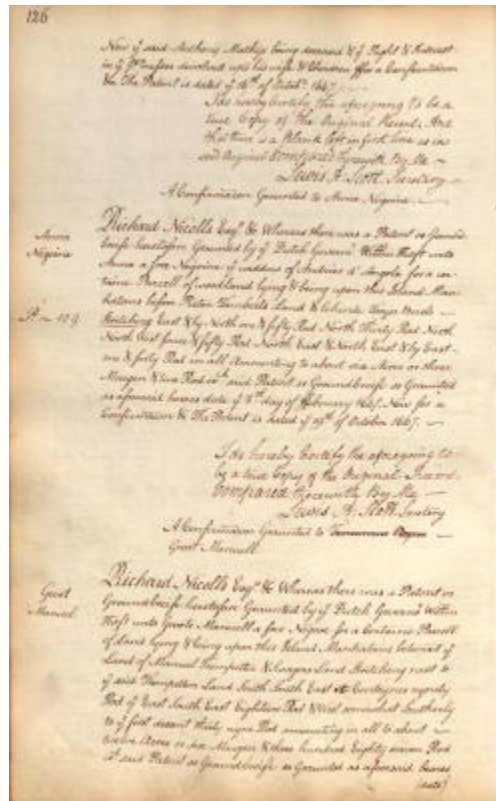 126
Now yͤ said Anthony Mathys being deceased & yͤ Right & Interest
in yͤ Pʳmisses devolved unto his wife & Children for a Confirmation
&c The Patent is dated yͤ of Octobʳ 1667.
I do hereby Certify the aforegoing to be a
true Copy of the Original Record. And
that there is a Blank left in first line as in
said Original Compared therewith By Me
Lewis A. Scott Secretary
A Confirmation Granted to Anna Negroine
Anna
Negroine
Richard Nicolls Esqʳ &c Whereas there was a Patent or Ground
briefe heretofore Granted by yͤ Dutch Governʳ William Kieft unto
Anna a free Negroine yͤ widdow of Andries d'Angola for a cer
taine Parcell of woodland lying & being upon this Island Man
hatans before Pieter Land & behinde
Pᵃ 109
Stretching East & by North one & fifty Rod North Thirty Rod North
North West four & fifty Rod North East & North East & by East
one & forty Rod in all Amounting to about six Acres or three
Morgen & Rod wᶜʰ said Patent or Groundbriefe so Granted
as aforesaid beares date yͤ 8ᵗʰ day of February 1647. Now for a
Confirmation &c The Patent is dated yͤ 19ᵗʰ of October 1667.
I do hereby Certify the aforegoing to
be a true Copy of the Original Record
Compared therewith By Me
Lewis A. Scott Secretary
A Confirmation Granted to
Groot Manuell
Groot
Manuel
Richard Nicolls Esqʳ &c Whereas there was a Patent or
Groundbriefe heretofore Granted by yͤ Dutch Governʳ William
Kieft unto Groote Manuell a free Negroe for a Certaine Parcell
of Land lying & being upon this Island Manhatans behind yͤ
Land of Manuel Trumpetter & Land Stretching next to
yͤ said Trumpetters Land South South East Containes ninety
Rod yͤ East South East Eighteen Rod & West somewhat Southerly
to yͤ first descent thirty nine Rod amounting in all to about
twelve Acres or six Morgen & three hundred Eighty seaven Rod
wᶜʰ said Patent or Groundbriefe so Granted as aforesaid beares
date